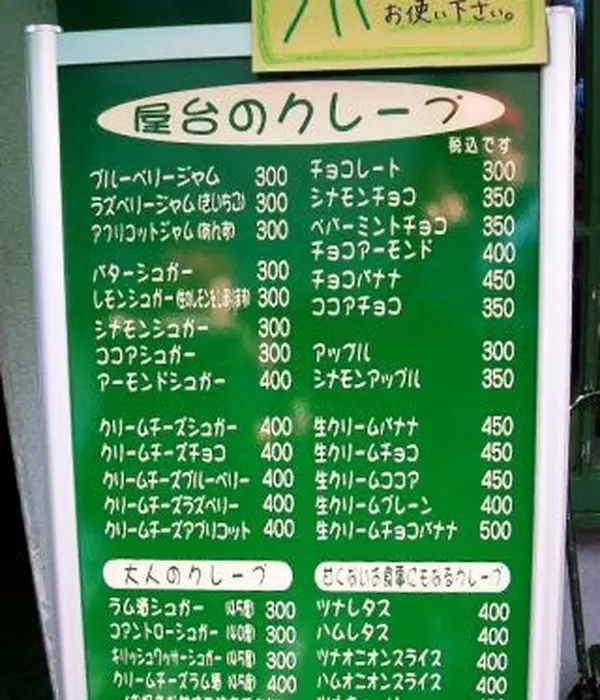 お使い下さい。
屋台のクレープ
税込です
ブルーベリージャム 300
ラズベリージャム(きいちご) 300
アプリコットジャム(あんず) 300
バターシュガー 300
レモンシュガー(生のレモンをしぼります) 300
シナモンシュガー 300
ココアシュガー 300
アーモンドシュガー 400
クリームチーズシュガー 400
クリームチーズチョコ 400
クリームチーズブルーベリー 400
クリームチーズラズベリー 400
クリームチーズアプリコット 400
チョコレート 300
シナモンチョコ 350
ペパーミントチョコ 350
チョコアーモンド 400
チョコバナナ 450
ココアチョコ 350
アップル 300
シナモンアップル 350
生クリームバナナ 450
生クリームチョコ 450
生クリームココア 450
生クリームプレーン 400
生クリームチョコバナナ 500
大人のクレープ
ラム酒シュガー (45度) 300
コアントローシュガー (40度) 300
キルッシュワッサーシュガー (45度) 300
クリームチーズラム酒 (45度) 400
甘くないお食事にもなるクレープ
ツナレタス 400
ハムレタス 400
ツナオニオンスライス 400
ハムオニオンスライス 400